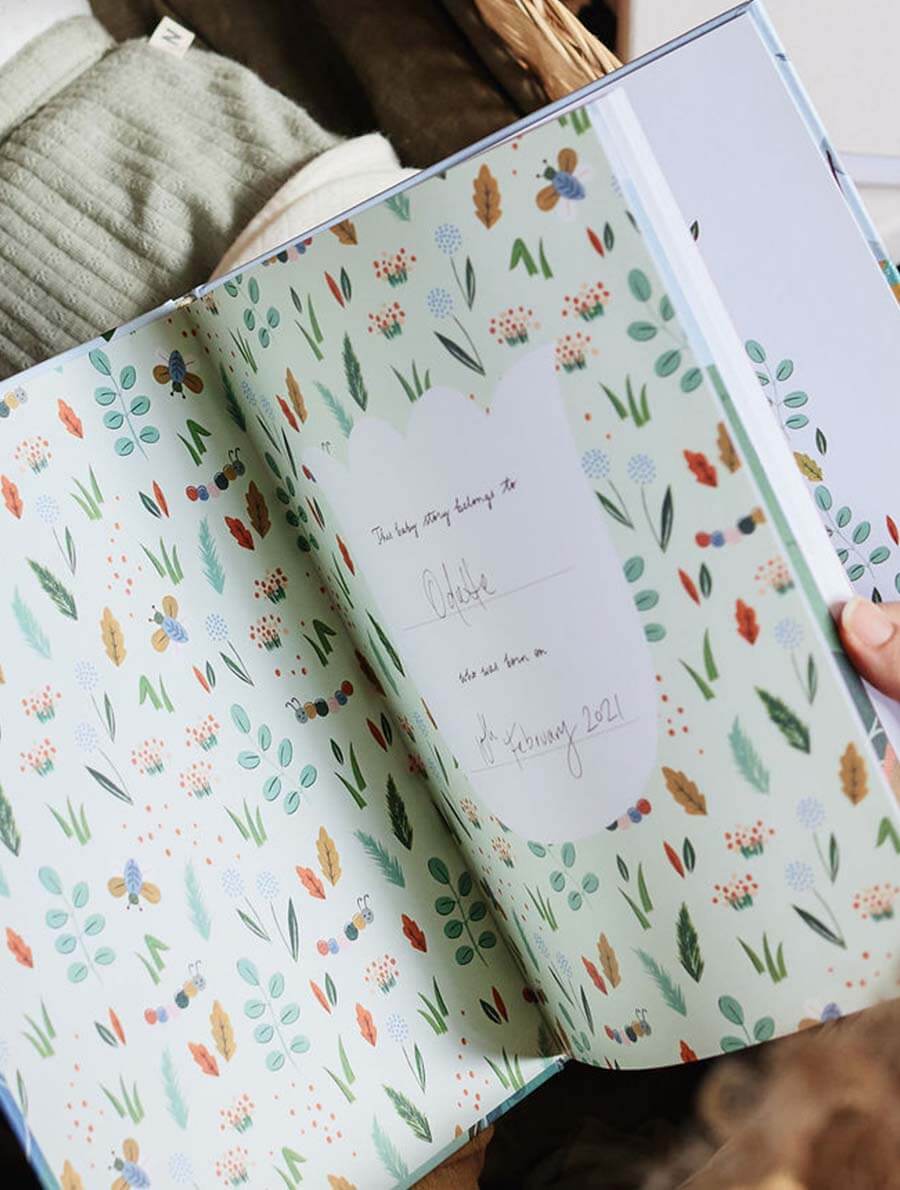 N
This baby story belongs to
Odette
who was born on
February 2021